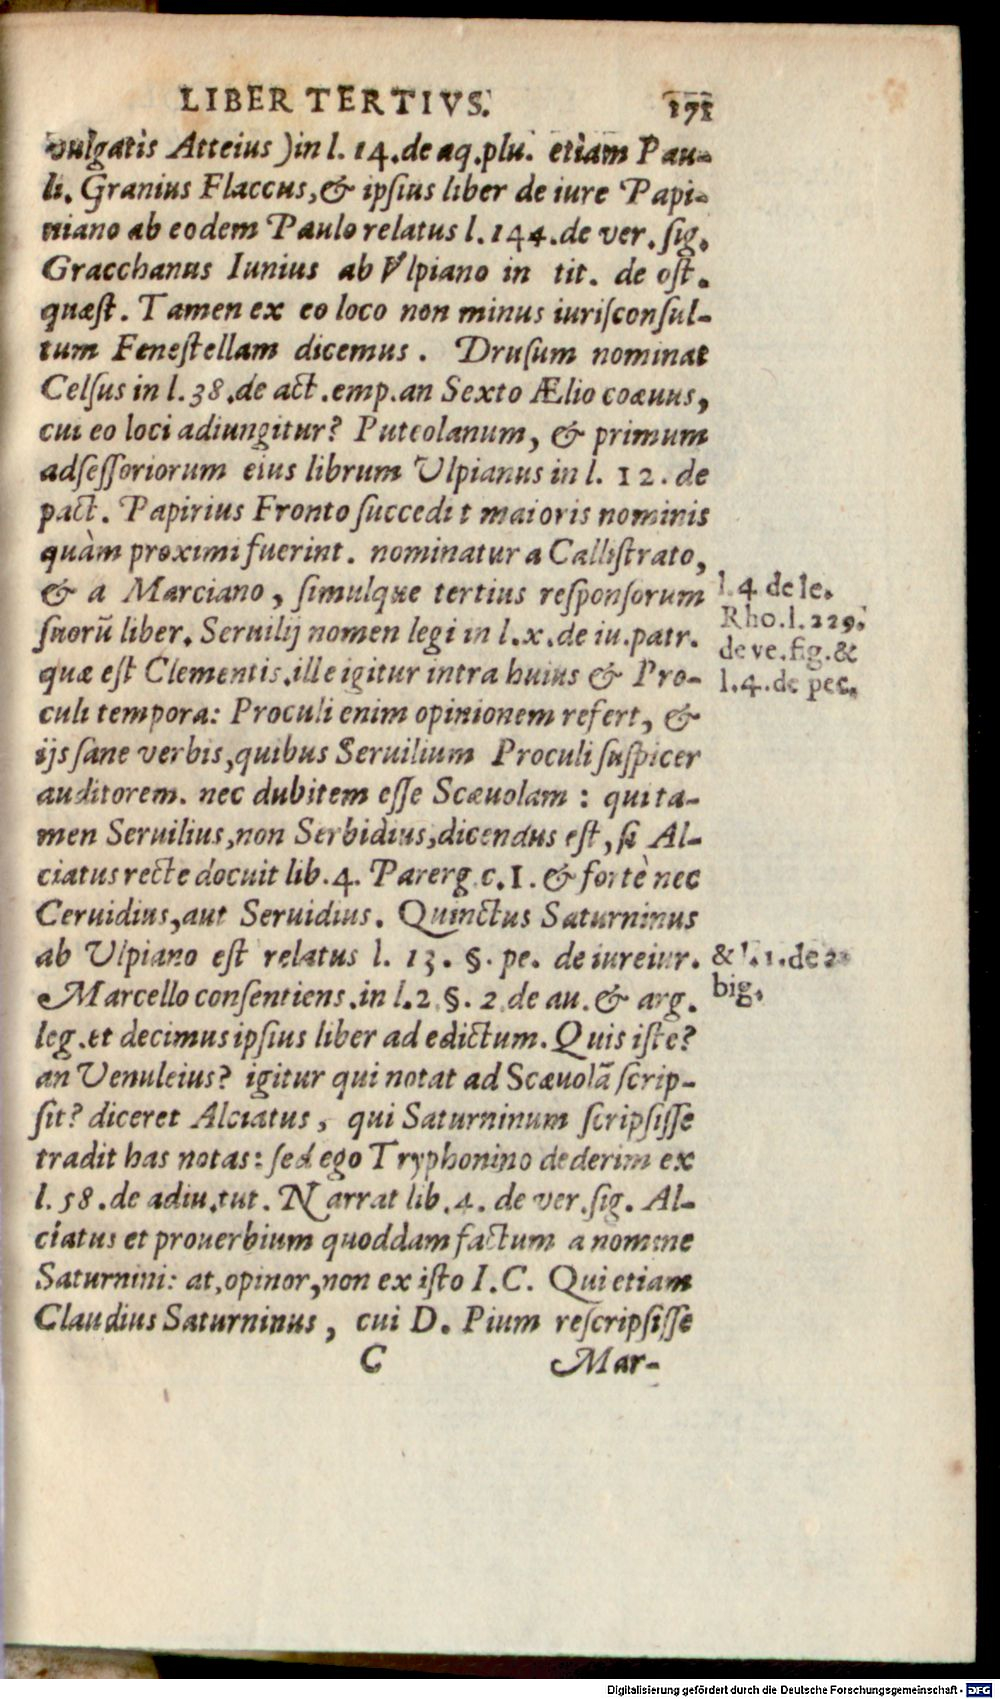 LIBER TERTIVS. 171
vulgatis Atteius) in l. 14. de aq. plu. etiam Pau-
li. Granius Flaccus, & ipsius liber de iure Papi-
niano ab eodem Paulo relatus l. 144. de ver. sig.
Gracchanus Iunius ab Vlpiano in tit. de ost.
quæst. Tamen ex eo loco non minus iurisconsul-
tum Fenestellam dicemus. Drusum nominat
Celsus in l. 38. de act. emp. an Sexto Ælio coæuus,
cui eo loci adiungitur? Puteolanum, & primum
adsessoriorum eius librum Vlpianus in l. 12. de
pact. Papirius Fronto succedit maioris nominis
quàm proximi fuerint. nominatur a Callistrato,
& a Marciano, simulque tertius responsorum
suorũ liber. Seruilij nomen legi in l. x. de iu. patr.
quæ est Clementis. ille igitur intra huius & Pro-
culi tempora: Proculi enim opinionem refert, &
ijs sane verbis, quibus Seruilium Proculi suspicer
auditorem. nec dubitem esse Scæuolam: qui ta-
men Seruilius, non Serbidius, dicendus est, si Al-
ciatus recte docuit lib. 4. Parerg. c. 1. & fortè nec
Ceruidius, aut Seruidius. Quinctus Saturninus
ab Ulpiano est relatus l. 13. §. pe. de iureiur.
Marcello consentiens. in l. 2. §. 2. de au. & arg.
leg. et decimus ipsius liber ad edictum. Quis iste?
an Venuleius? igitur qui notat ad Scæuolã scrip-
sit? diceret Alciatus, qui Saturninum scripsisse
tradit has notas: sed ego Tryphonino dederim ex
l. 58. de adiu. tut. Narrat lib. 4. de ver. sig. Al-
ciatus et prouerbium quoddam factum a nomine
Saturnini: at, opinor, non ex isto I. C. Qui etiam
Claudius Saturninus, cui D. Pium rescripsisse
C Mar-
l. 4. de le.
Rho. l. 229.
de ve. sig. &
l. 4. de pec.
& l. 1. de
big.
Digitalisierung gefördert durch die Deutsche Forschungsgemeinschaft - DFG